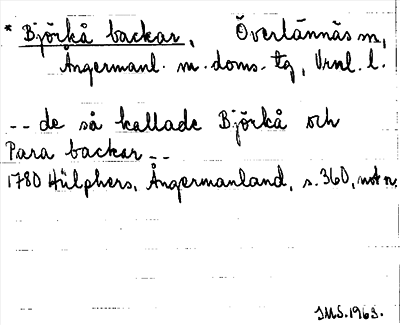 * Björkå backar, Överlännäs sn,
Ångermanl. m. doms. tg, Vrnl. l.
-- de så kallade Björkå och
Para backar --
1780 Hülphers, Ångermanland, s. 360, not n.
JMS. 1963.